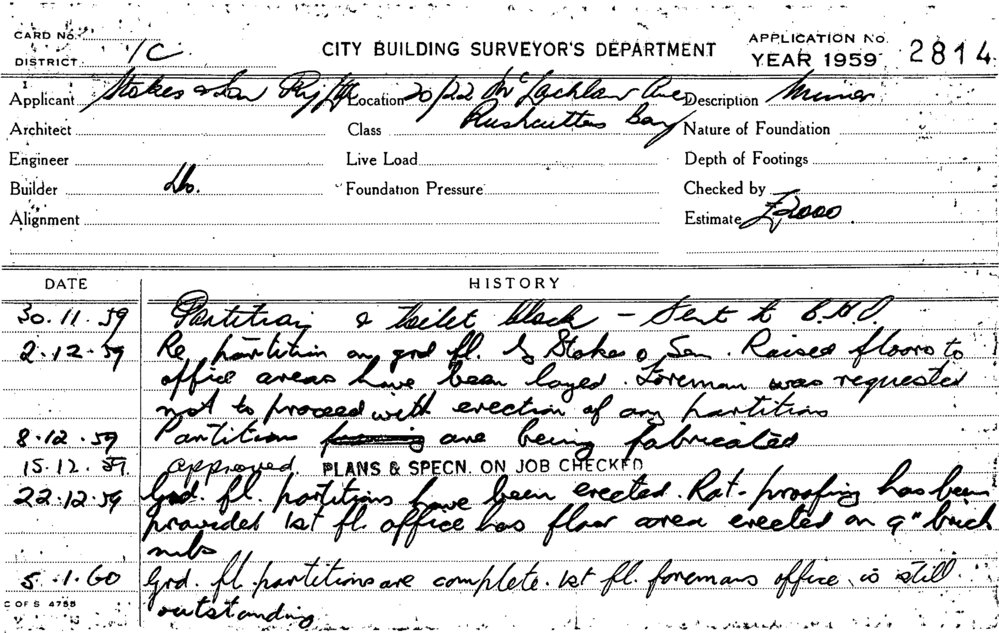 CARD No.
DISTRICT 1C
CITY BUILDING SURVEYOR'S DEPARTMENT
APPLICATION No.
YEAR 1959 2814
Applicant Stokes & Son Pty Ltd Location 20/22 McLachlan Ave Description Minor
Architect Class Rushcutters Bay Nature of Foundation
Engineer Live Load Depth of Footings
Builder Do. Foundation Pressure Checked by
Alignment Estimate £2000.
DATE HISTORY
30.11.59 Partition & toilet block - Sent to
2.12.59 Re partition on grd fl. by Stokes & Son. Raised floors to
office areas have been layed. Foreman was requested
not to proceed with erection of any partitions
8.12.59 Partitions are being fabricated
15.12.59. approved. PLANS & SPECN. ON JOB CHECKED
22.12.59 Grd. fl. partitions have been erected. Rat-proofing has been
provided 1st fl. office has floor area erected on 9" brick
nibs
5.1.60 Grd. fl partitions are complete. 1st fl. foremans office is still
outstanding
C OF S 4755